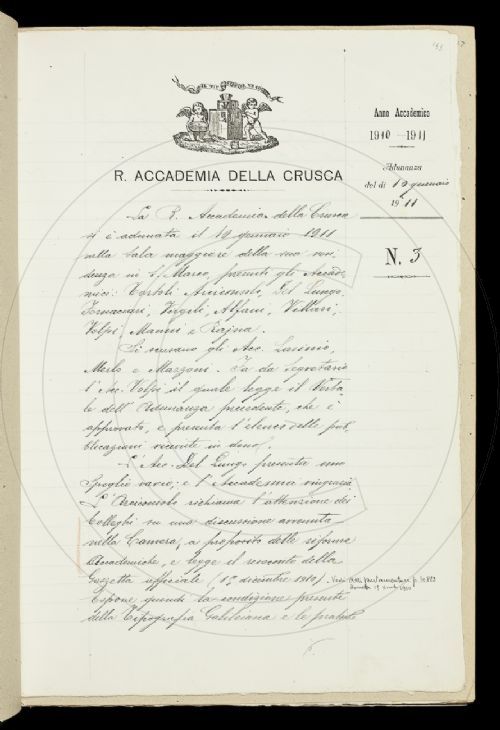 Anno Accademico
1910-1911
Adunanza
del dì 19 gennaio
1911
N. 3
R. ACCADEMIA DELLA CRUSCA
La R. Accademia della Crusca
si è adunata il 19 gennaio 1911
nella Sala maggiore della sua resi
denza in S. Marco, presenti gli Accade
mici: Tortoli Arciconsolo, Del Lungo,
Tornaciari, Vergili, Alfani, Villari,
Volpi, Mannu e Rajna.
Si scusano gli Acc. Lasinio,
Merlo e Mazzoni. Fa da Segretario
l'Acc. Volpi il quale legge il Verba
le dell'Adunanza precedente, che è
approvato, e presenta l'elenco delle pub
blicazioni ricevute in dono.
L'Acc. Del Lungo presenta uno
Spoglio vario; e l'Accademia ringrazia.
L'Arciconsolo richiama l'attenzione dei
Colleghi su una discussione avvenuta
nella Camera, a proposito delle riforme
Accademiche, e legge il resoconto della
Gazzetta ufficiale (1° dicembre 1910).
Espone quindi la condizione presente
della Tipografia Galileiana e le pratiche